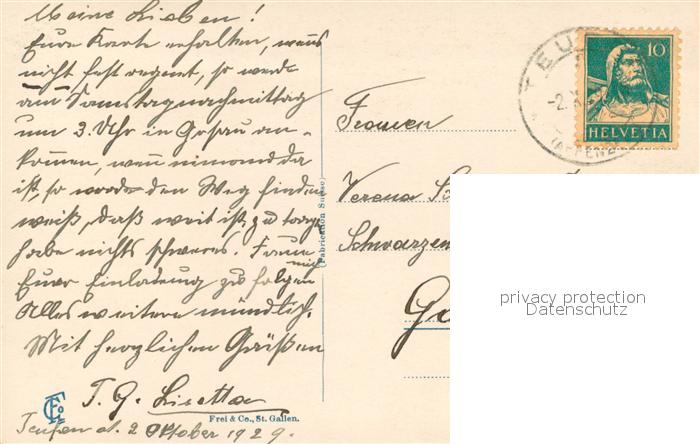 Meine Lieben!
Eure Karte erhalten, wenns
nicht fest regent, so werde
am Samstagnachmittag
um 3. Uhr in Gosau an-
kommen, wenn niemand da
ist, so werde den Weg finden
weiß, daß weit ist, zu tragen
habe nichts schweres. Freue
mich
Eurer Einladung zu folgen
Alles weitere mündlich.
Mit herzlichen Grüßen
T. G. Lisetta
Teufen d. 2 Oktober 1929.
Frei & Co., St. Gallen.
(Fabrication Suisse)
TEU
-2.X.
(APPENZ
10
HELVETIA
Frauen
Verena
Schwarzen
Go
privacy protection
Datenschutz